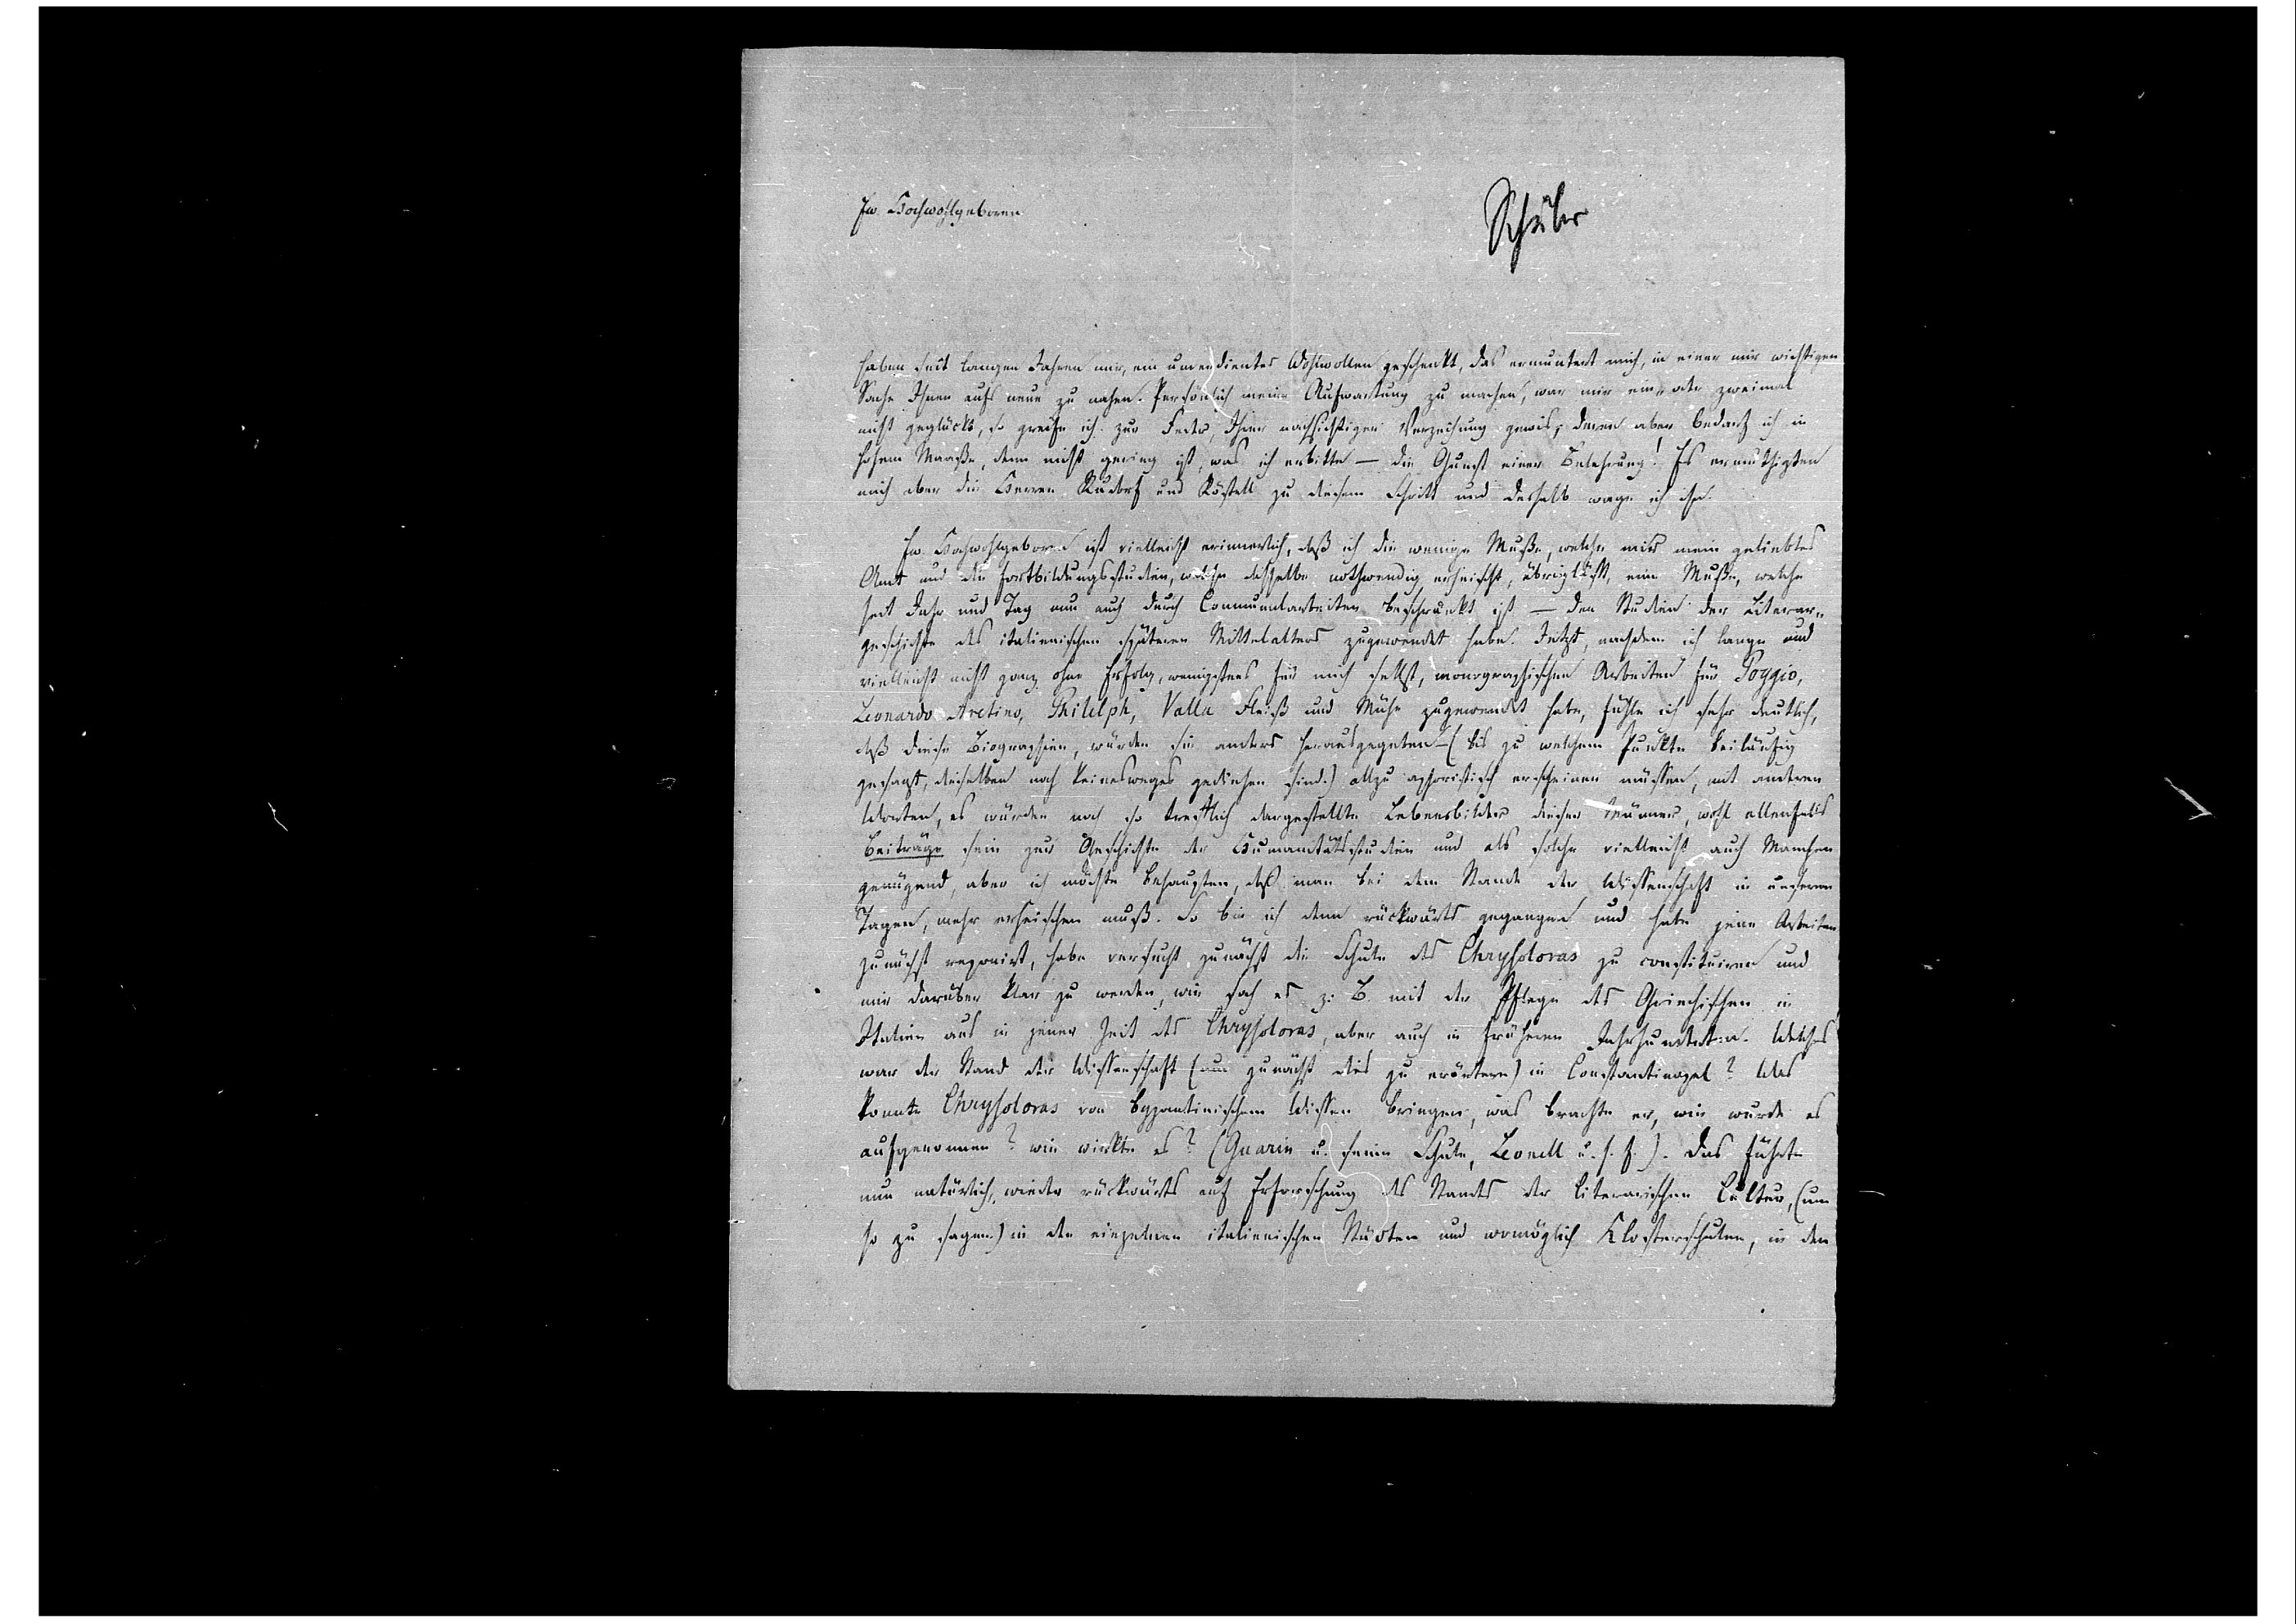 Ew. Hochwohlgeboren
Schüler
haben seit langen Jahren mir, ein unverdientes Wohlwollen geschenkt, das ermuntert mich, in einer mir wichtigen
Sache Ihnen aufs neue zu nahen. Persönlich meine Aufwartung zu machen, war mir ein„ oder zweimal
nicht geglückt, so greife ich zur Feder, Ihrer nachsichtigen Verzeihung gewis; deren aber bedarf ich in
hohem Maaße, denn nicht gering ist, was ich erbitte — die Gunst einer Belehrung! Es ermuthigten
mich aber die Herren Rudorf und Köstell zu diesem Schritt und deshalb wage ich ihn.
Ew. Hochwohlgeboren ist vielleicht erinnerlich, daß ich die wenige Muße, welche mir mein geliebtes
Amt und die Fortbildungsstudien, welche dasselbe nothwendig erheischt, übrigläßt, eine Muße, welche
seit Jahr und Tag nun auch durch Communalarbeiten beschränkt ist — den Studien der Literar„
geschichte des italienischen späteren Mittelalters zugewendet habe. Jetzt, nachdem ich lange und
vielleicht nicht ganz ohne Erfolg, wenigstens für mich selbst, monographischen Arbeiten für Poggio,
Leonardo Aretino, Philelph, Valla Fleiß und Mühe zugewendet habe, fühle ich sehr deutlich,
daß diese Biographien, würden sie anders herausgegeben — (bis zu welchem Punkte beiläufig
gesagt, dieselben noch keinesweges gediehen sind.) allzu aphoristisch erscheinen müssen, mit anderen
Worten, es würden noch so trefflich dargestellte Lebensbilder dieser Männer, wohl allenfalls
Beiträge sein zur Geschichte der Humanitätsstudien und als solche vielleicht auch Manchem
genügend, aber ich möchte behaupten, daß man bei dem Stande der Wissenschaft in unseren
Tagen, mehr erheischen muß. So bin ich denn rückwärts gegangen und habe jene Arbeiten
zunächst reponirt, habe versucht zunächst die Schule des Chrysoloras zu constituiren und
mir darüber klar zu werden, wie sah es z. B. mit der Pflege des Griechischen in
Italien aus in jener Zeit des Chrysoloras, aber auch in früheren Jahrhunderten. Welches
war der Stand der Wissenschaft (um zunächst dies zu erörtern) in Constantinopel? Was
konnte Chrysoloras von byzantinischem Wissen bringen, was brachte er, wie wurde es
aufgenommen? wie wirkte es? (Guarin u. seine Schule, Leonell u. s. f.). Das führte
nun natürlich, wieder rückwärts auf Erforschung des Standes der literarischen Cultur, (um
so zu sagen) in den einzelnen italienischen Städten und womöglich Klosterschulen, in den